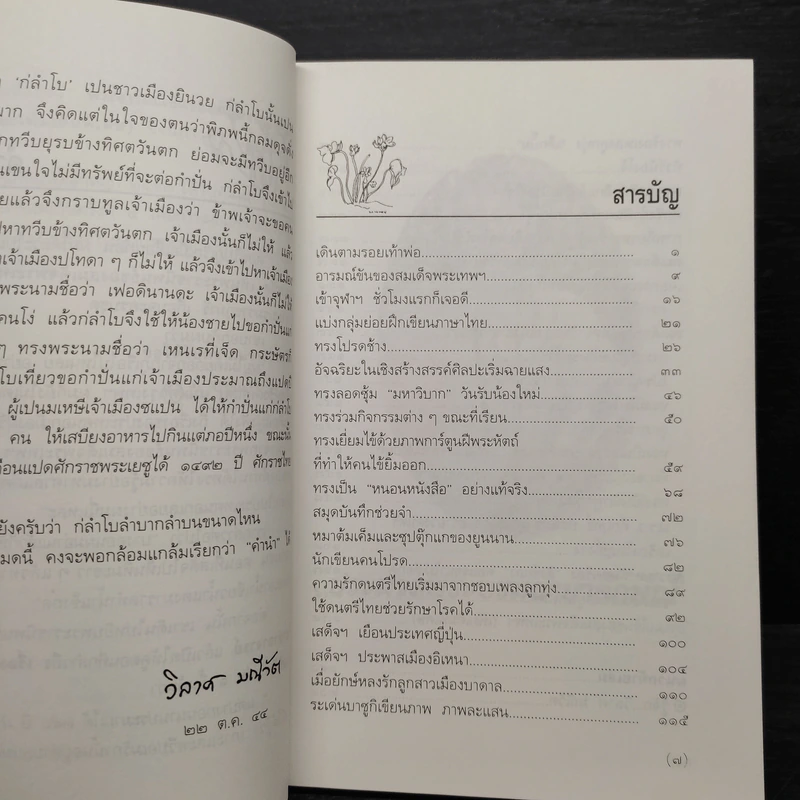 'ก่ลำโบ' เปนชาวเมืองยินวย ก่ลำโบนั้นเปน
จึงคิดแต่ในใจของตนว่าพิภพนี้กลมดุจดัง
ทวีบยุรบข้างทิศตวันตก ย่อมจะมีทวีบอยู่อีก
นเขนใจไม่มีทรัพย์ที่จะต่อกำปั่น ก่ลำโบจึงเข้าไป
ยแล้วจึงกราบทูลเจ้าเมืองว่า ข้าพเจ้าจะขอคน
ปหาทวีบข้างทิศตวันตก เจ้าเมืองนั้นก็ไม่ให้ แล้ว
เจ้าเมืองปโทดา ๆ ก็ไม่ให้ แล้วจึงเข้าไปหาเจ้าเมือง
พระนามชื่อว่า เฟอดินานดะ เจ้าเมืองนั้นก็ไม่ให้
คนโง่ แล้วก่ลำโบจึงใช้ให้น้องชายไปขอกำปั่นแก่
ๆ ทรงพระนามชื่อว่า เหนเรที่เจ็ด กระษัตรก็
โบเที่ยวขอกำปั่นแก่เจ้าเมืองประมาณถึงแปดปี
ผู้เปนมเหษีเจ้าเมืองซแปน ได้ให้กำปั่นแก่ก่ลำโบ
คน ให้เสบียงอาหารไปกินแต่ภอปีหนึ่ง ขณะนั้น
ดือนแปดศักราชพระเยซูได้ ๑๔๙๒ ปี ศักราชไทย
ยังครับว่า ก่ลำโบลำบากลำบนขนาดไหน
มดนี้ คงจะพอกล้อมแกล้มเรียกว่า "คำนำ" ได้
วิลาศ มณีวัต
๒๒ ต.ค. ๔๔
สารบัญ
เดินตามรอยเท้าพ่อ ๑
อารมณ์ขันของสมเด็จพระเทพฯ ๙
เข้าจุฬาฯ ชั่วโมงแรกก็เจอดี ๑๖
แบ่งกลุ่มย่อยฝึกเขียนภาษาไทย ๒๑
ทรงโปรดช้าง ๒๖
อัจฉริยะในเชิงสร้างสรรค์ศิลปะเริ่มฉายแสง ๓๓
ทรงลอดซุ้ม "มหาวิบาก" วันรับน้องใหม่ ๔๖
ทรงร่วมกิจกรรมต่าง ๆ ขณะที่เรียน ๕๐
ทรงเยี่ยมไข้ด้วยภาพการ์ตูนฝีพระหัตถ์
ที่ทำให้คนไข้ยิ้มออก ๕๙
ทรงเป็น "หนอนหนังสือ" อย่างแท้จริง ๖๘
สมุดบันทึกช่วยจำ ๗๒
หมาต้มเค็มและซุปตุ๊กแกของยูนนาน ๗๖
นักเขียนคนโปรด ๘๒
ความรักดนตรีไทยเริ่มมาจากชอบเพลงลูกทุ่ง ๘๙
ใช้ดนตรีไทยช่วยรักษาโรคได้ ๙๒
เสด็จฯ เยือนประเทศญี่ปุ่น ๑๐๐
เสด็จฯ ประพาสเมืองอิเหนา ๑๐๔
เมื่อยักษ์หลงรักลูกสาวเมืองบาดาล ๑๑๐
ระเด่นบาซูกิเขียนภาพ ภาพละแสน ๑๑๕
(๗)